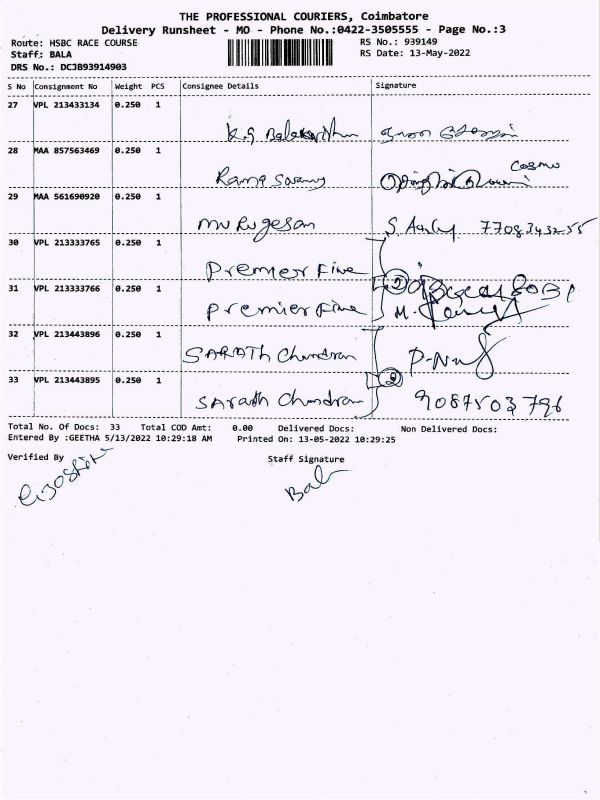 THE PROFESSIONAL COURIERS, Coimbatore
Delivery Runsheet - MO - Phone No.:0422-3505555 - Page No.:3
Route: HSBC RACE COURSE RS No.: 939149
Staff: BALA RS Date: 13-May-2022
DRS No.: DCJB93914903
S No Consignment No Weight PCS Consignee Details Signature
27 VPL 213433134 0.250 1
K.G Balakrishnan
28 MAA 857563469 0.250 1
Rama Swamy Cosmo
29 MAA 561690920 0.250 1
Murugesan S. 7708343255
30 VPL 213333765 0.250 1
Premier Fine
31 VPL 213333766 0.250 1
Premier Fine M.
32 VPL 213443896 0.250 1
SARATH Chandran
33 VPL 213443895 0.250 1
Sarath Chandran 9087503796
Total No. Of Docs: 33 Total COD Amt: 0.00 Delivered Docs: Non Delivered Docs:
Entered By :GEETHA 5/13/2022 10:29:18 AM Printed On: 13-05-2022 10:29:25
Verified By Staff Signature
Bala